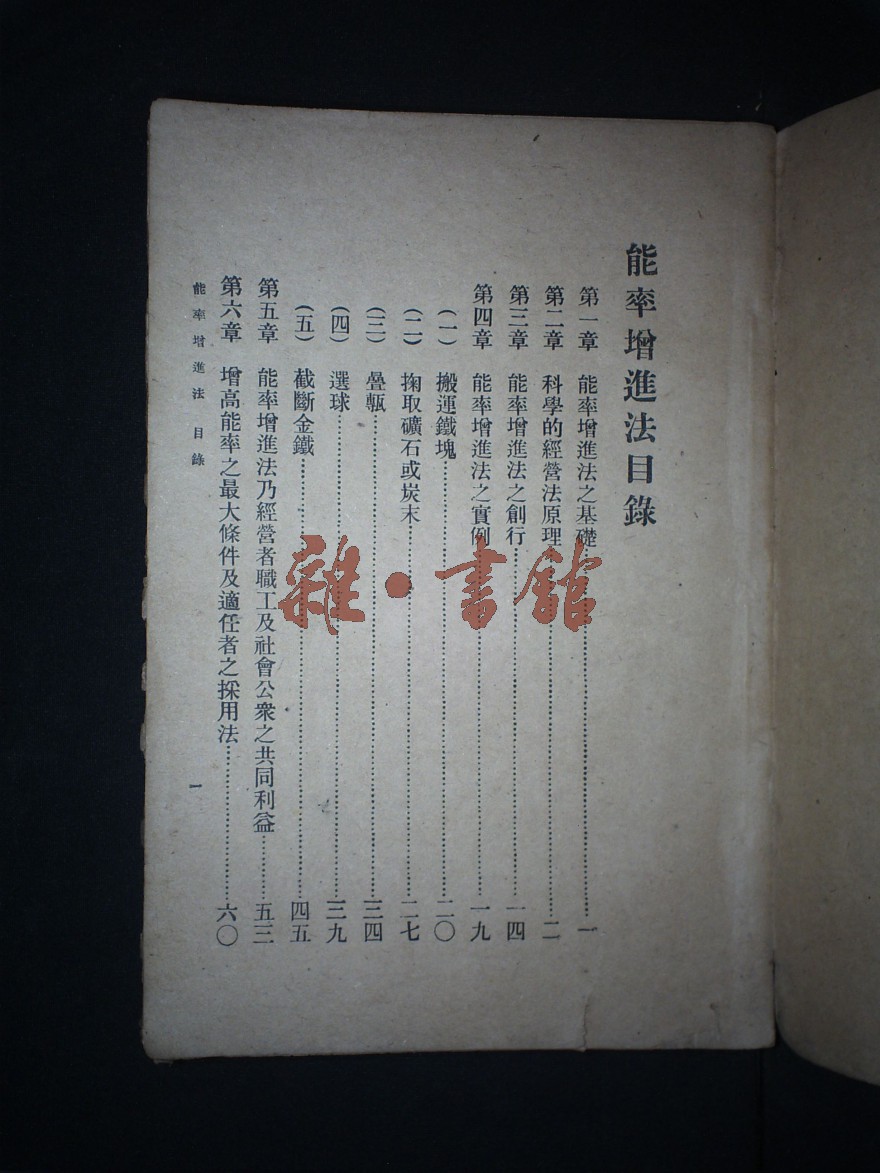 能率增進法目錄
第一章 能率增進法之基礎……一
第二章 科學的經營法原理……二
第三章 能率增進法之創行……一四
第四章 能率增進法之實例……一九
(一) 搬運鐵塊……二〇
(二) 掬取礦石或炭末……二七
(三) 疊甎……三四
(四) 選球……三九
(五) 截斷金鐵……四五
第五章 能率增進法乃經營者職工及社會公衆之共同利益……五三
第六章 增高能率之最大條件及適任者之採用法……六〇
能率增進法 目錄 一
雜·書館